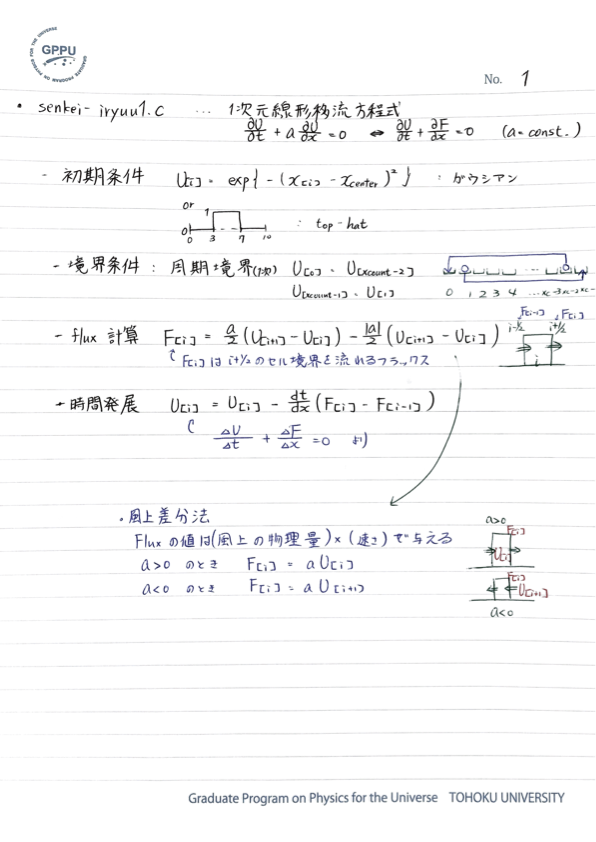 GPPU
GRADUATE PROGRAM ON PHYSICS FOR THE UNIVERSE
No. 1
・ senkei-iryuu1.c … 1次元線形移流方程式
∂U/∂t + a ∂U/∂x = 0 ⇔ ∂U/∂t + ∂F/∂x = 0 (a = const.)
- 初期条件 U[i] = exp{ -(x[i] - xcenter)² } : ガウシアン
or
1
0 : top-hat
0 3 7 10
- 境界条件 : 周期境界(1次) U[0] = U[xcount-2]
U[xcount-1] = U[1]
0 1 2 3 4 … xc-3 xc-2 xc-
- flux 計算 F[i] = a/2 (U[i+1] - U[i]) - |a|/2 (U[i+1] - U[i])
F[i-1] F[i]
i-1/2 i+1/2
i
F[i]は i+1/2 のセル境界を流れるフラックス
- 時間発展 U[i] = U[i] - dt/dx (F[i] - F[i-1])
ΔU/Δt + ΔF/Δx = 0 より
・風上差分法
Fluxの値は(風上の物理量)×(速さ)で与える
a>0 のとき F[i] = a U[i]
a<0 のとき F[i] = a U[i+1]
a>0
F[i]
U[i]
F[i]
U[i+1]
a<0
Graduate Program on Physics for the Universe TOHOKU UNIVERSITY